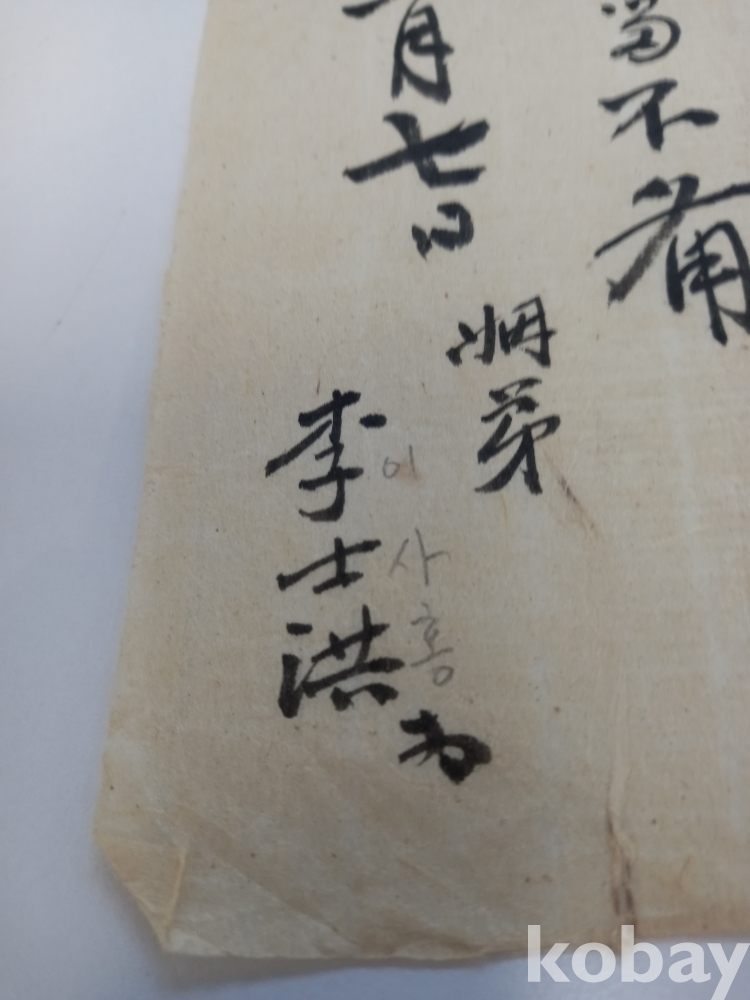 不備
月七日
姻弟
李士洪
이사홍
kobay